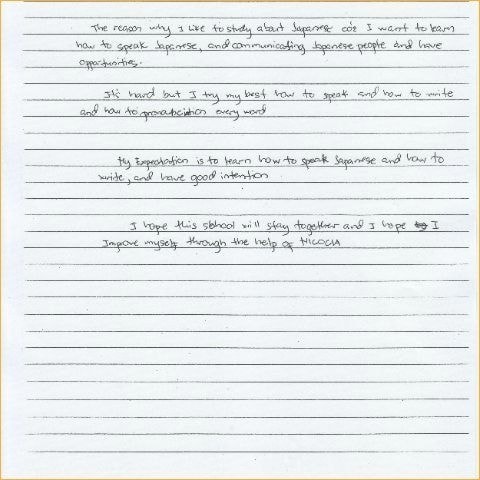 The reason why I like to study about Japanese coz I want to learn
how to speak Japanese, and communicating Japanese people and have
opportunities.
It's hard but I try my best how to speak and how to write
and how to pronunciation every word
My Expectation is to learn how to speak Japanese and how to
write, and have good intention
I hope this school will stay together and I hope I
Improve myself through the help of NICOCIA